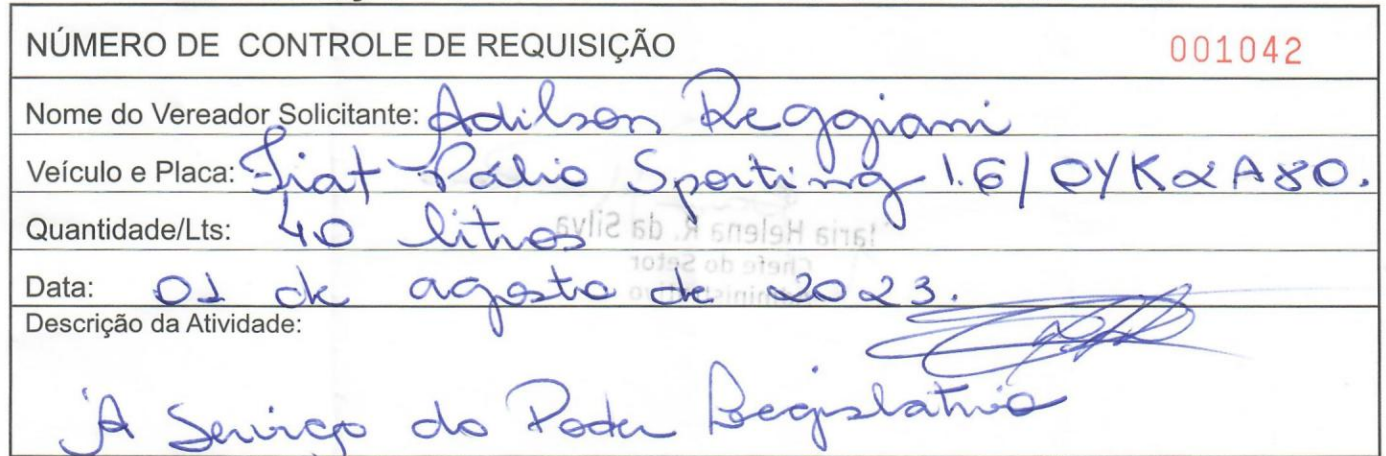 NÚMERO DE CONTROLE DE REQUISIÇÃO 001042
Nome do Vereador Solicitante: Adilson Reggiani
Veículo e Placa: Fiat Pálio Sporting 1.6/ OYK2A80.
Quantidade/Lts: 40 litros
Maria Helena R. da Silva
Chefe do Setor
Administrativo
Data: 01 de agosto de 2023.
Descrição da Atividade:
À Serviço do Poder Legislativo